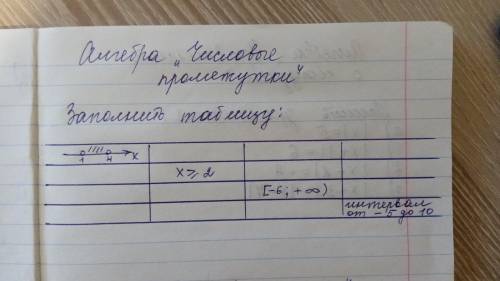 Алгебра „Числовые
промежутки“
Заполнить таблицу:
1 4 x
x ≥ 2
[-6; +∞)
интервал
от -5 до 10